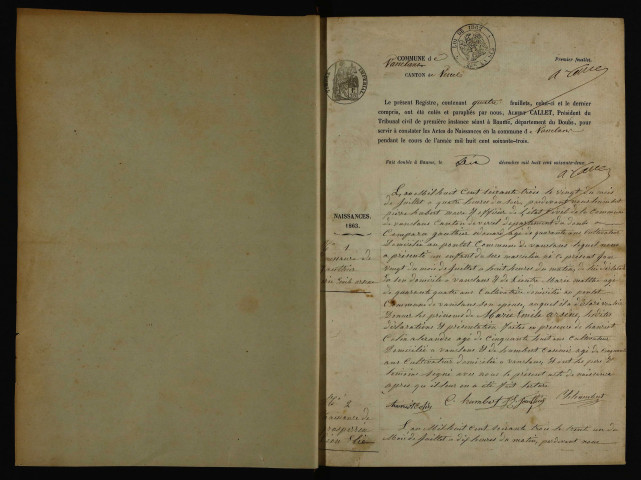 COMMUNE de
Vauclans
CANTON de
Premier feuillet,
Le présent Registre, contenant quatre feuillets, celui-ci et le dernier
compris, ont été cotés et paraphés par nous, ALBERT CALLET, Président du
Tribunal civil de première instance séant à Baume, département du Doubs, pour
servir à constater les Actes de Naissances en la commune de Vauclans
pendant le cours de l'année mil huit cent soixante-trois.
Fait double à Baume, le décembre mil huit cent soixante-deux.
NAISSANCES.
1863.
N° 1
L'an Mil huit Cent soixante trois le vingt du mois
de Juillet a quatre heures du soir, pardevant nous humbert
pierre hubert maire et officier de l'état Civil de la Commune
de vauclans Canton de vercel département du doubs a
Comparu gauthier édouard, agé de quarante ans Cultivateur
Domicilié au pontet Commune de vauclans lequel nous
a présenté un enfant du sexe masculin né le présent jour
vingt du mois de Juillet a huit heures du matin, de lui déclarant
en son domicile a vauclans et de Marie agé
de quarante quatre ans Cultivatrice domiciliée au pontet
Commune de vauclans son épouse, auquel il a déclaré vouloir
Donner les prénoms de Marie Emile arsène, lesdites
déclarations et présentation faites en présence de
agé de Cinquante huit ans cultivateur
Domicilié a vauclans et de humbert agé de
ans Cultivateur domicilié a vauclans, et ont les père et
témoins signé avec nous le présent acte de naissance
après qu'il leur en a été fait lecture
C. humbert Ph humbert
N° 2
L'an Mil huit Cent soixante trois le trente un du
Mois de Juillet a dix heures du matin, pardevant nous